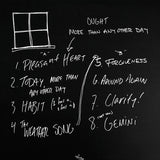 OUGHT
MORE THAN ANY OTHER DAY
1. PIECES OF HEART
2. TODAY MORE THAN
ANY OTHER DAY
3. HABIT
4 THE WEATHER SONG
"B"
5. FORGIVENESS
6 AROUND AGAIN
7. Clarity!
8. GEMINI